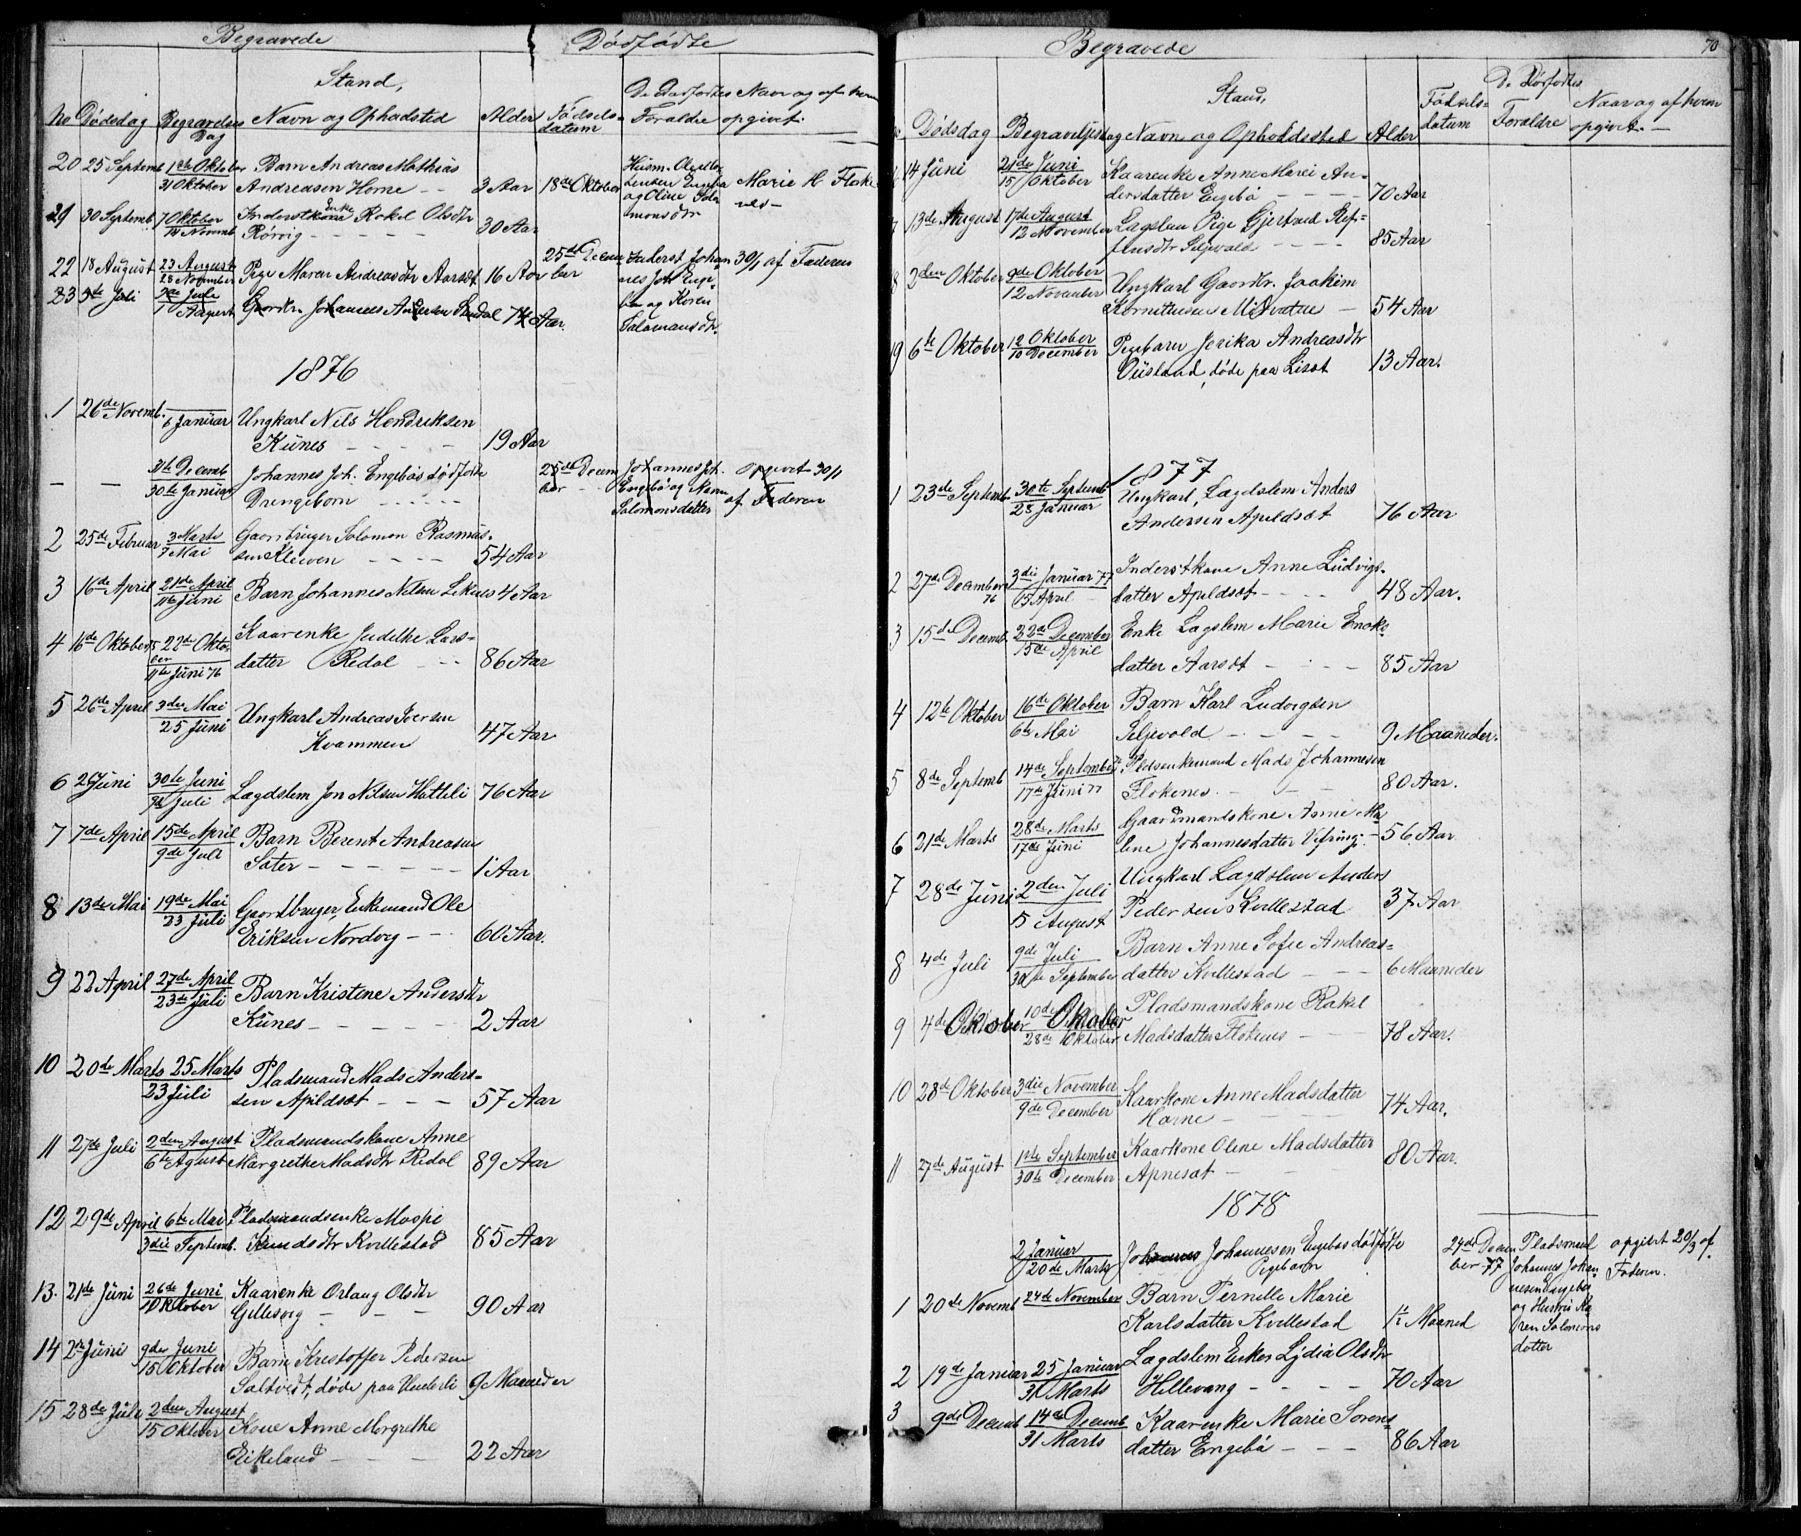 Begravede
Dødfødte
No Dødsdag Begravelses Dag Stand, Navn og Opholdssted Alder Fødselsdatum De Dødfødtes Forældre Naar og af hvem opgivet
20 25 Septemb 1ste Oktober Barn Andreas Mathias
31 Oktober Andreasen Horne - - 3 Aar 18de Oktober Marie H. Floke
og Oline Salomonsdtr
21 30 Septemb. 7 Oktober Inderstkone Rakel Olsdtr
14 Novemb Rørvig - - - - 30 Aar
22 18 August 23 August Pige Maren Andreasdtr Aarsæt 16 Aar
28 November
25de December Inderst Johannes Joh Engebø og Karen Salomonsdtr. 30/1 af Faderen
23 Juli August Gaardbr. Johannes Andersen 74 Aar.
1876
1 26de Novemb. 6 Januar Ungkarl Nils Hendriksen
Künes - - - - 19 Aar
- - 31te Decemb Johannes Joh. Engebøs dødfødte
30te Januar Drengebarn - - - -
25de December Johannes Joh. Engebø og Karen Salomonsdatter opgivet 30/1 af Faderen
2 25de Februar 3 Marts Gaardbruger Salomon Rasmus-
7 Mai sen Kleiven - - - - 54 Aar
3 16de April 21de April Barn Johannes Nilsen 4 Aar
11te Juni
4 16de Oktober 75 22de Oktober Kaarenke Judithe Lars-
11te Juni 76 datter Redal - - - 86 Aar
5 26de April 3die Mai Ungkarl Andreas Iversen
25 Juni Kvammen 47 Aar
6 26 Juni 30te Juni Lægdslem Jon Nilsen Hatteli 76 Aar
Juli
7 7de April 15de April Barn Berent Andreasen
9de Juli Sæter - - - - - 1 Aar
8 13de Mai 19de Mai Gaardbruger, Enkemand Ole
23 Juli Eriksen Nordvig - - - 60 Aar.
9 22 April 27de April Barn Kristene Andersdtr
23de Juli Künes - - - - 2 Aar
10 20de Marts 25 Marts Pladsmand Mads Anders-
23 Juli sen Apildsæt - - - 57 Aar
11 27de Juli 2den August Pladsmandskone Anne
6te August Margrethe Madsdtr Redal 89 Aar
12 29de April 6te Mai Pladsmandsenke
3die Septemb. Knudsdtr Kvellestad 85 Aar
13. 21de Juni 26de Juni Kaarenke Orlaug Olsdtr
1 Oktober Gillesvig - - - 90 Aar
14 2de Juni 9de Juni Barn Kristoffer Pedersen
15 Oktober Saltvedt, døde paa 9 Maaneder
15 28de Juli 2den August Kone Anne Margrethe
15 Oktober Eikeland - - - - 22 Aar
Begravede
70
Dødsdag Begravelsesdag Stand, Navn og Opholdssted Alder Fødselsdatum De Dødfødtes Forældre Naar og af hvem opgivet. -
14 Juni 21de Juni Kaarenke Anne Marie An-
15 Oktober dersdatter Engebø - - - - 70 Aar
13de August 17de August Lægslem Pige Gjertrud
12 November Seljevold - - - - 85 Aar
2den Oktober 9de Oktober Ungkarl Gaardbr. Joakim
12 November Kornilius Midvatne - 54 Aar
19 6te Oktober 12 Oktober Pigebarn Jerika Andreasdtr
10 December Øisland, døde paa 13 Aar.
1877
1 23de Septemb 30te Septemb Ungkarl, Lægdslem Anders
28 Januar Andersen Apeldsæt 76 Aar
2 27de December 76 3die Januar 77 Inderstkone Anne Ludvigs-
15 April datter Apeldsæt - - - 48 Aar.
3 15de Decemb 22de December Enke Lægslem Marie Enoks-
15de April datter Aarsæt - - - 85 Aar
4 12te Oktober 16de Oktober Barn Karl Ludvigsen
6te Mai Seljevold - - - - 9 Maaneder.
5 8de Septemb 14de September Pladsenkemand Mads Johannesen
17de Juni 77 Flokenes - - - 80 Aar.
6 21de Marts 28de Marts Gaardmandskone Anne Ma-
17de Juni lene Johannesdatter Vefring - 56 Aar
7 28de Juni 2den Juli Ungkarl Lægdslem Anders
5 August Pedersen Kvellestad 37 Aar
8 4de Juli 9de Juli Barn Anne Sofie Andreas-
30te September datter Kvellestad - - - 6 Maaneder
9 4de Oktober 10de Oktober Pladsmandskone Rakel
28de Oktober Madsdatter Flokenes - 78 Aar.
10 28de Oktober 3die November Kaarkone Anne Madsdatter
9de December Horne - - - 74 Aar.
11 27de August 1ste September Kaarkone Oline Madsdatter
30te December Apnesæt - - 80 Aar.
1878
2 Januar Johannes Johannesen Engebøs dødfødte
20de Marts Pigebarn
24de December 77 Pladsmand Johannes Johannesen Engebø og Hustru Karen Salomonsdatter opgivet 20/3 af Faderen.
1 20de Novemb 24de November Barn Pernille Marie
Karlsdatter Kvellestad 1½ Maaned
2 19de Januar 25 Januar Lægdslem Enken Lydia Olsdtr
31 Marts Hillevang - - - - 70 Aar
3 9de Decemb 14de Decemb Kaarenke Marie Sørens-
31 Marts datter Engebø - - - 86 Aar